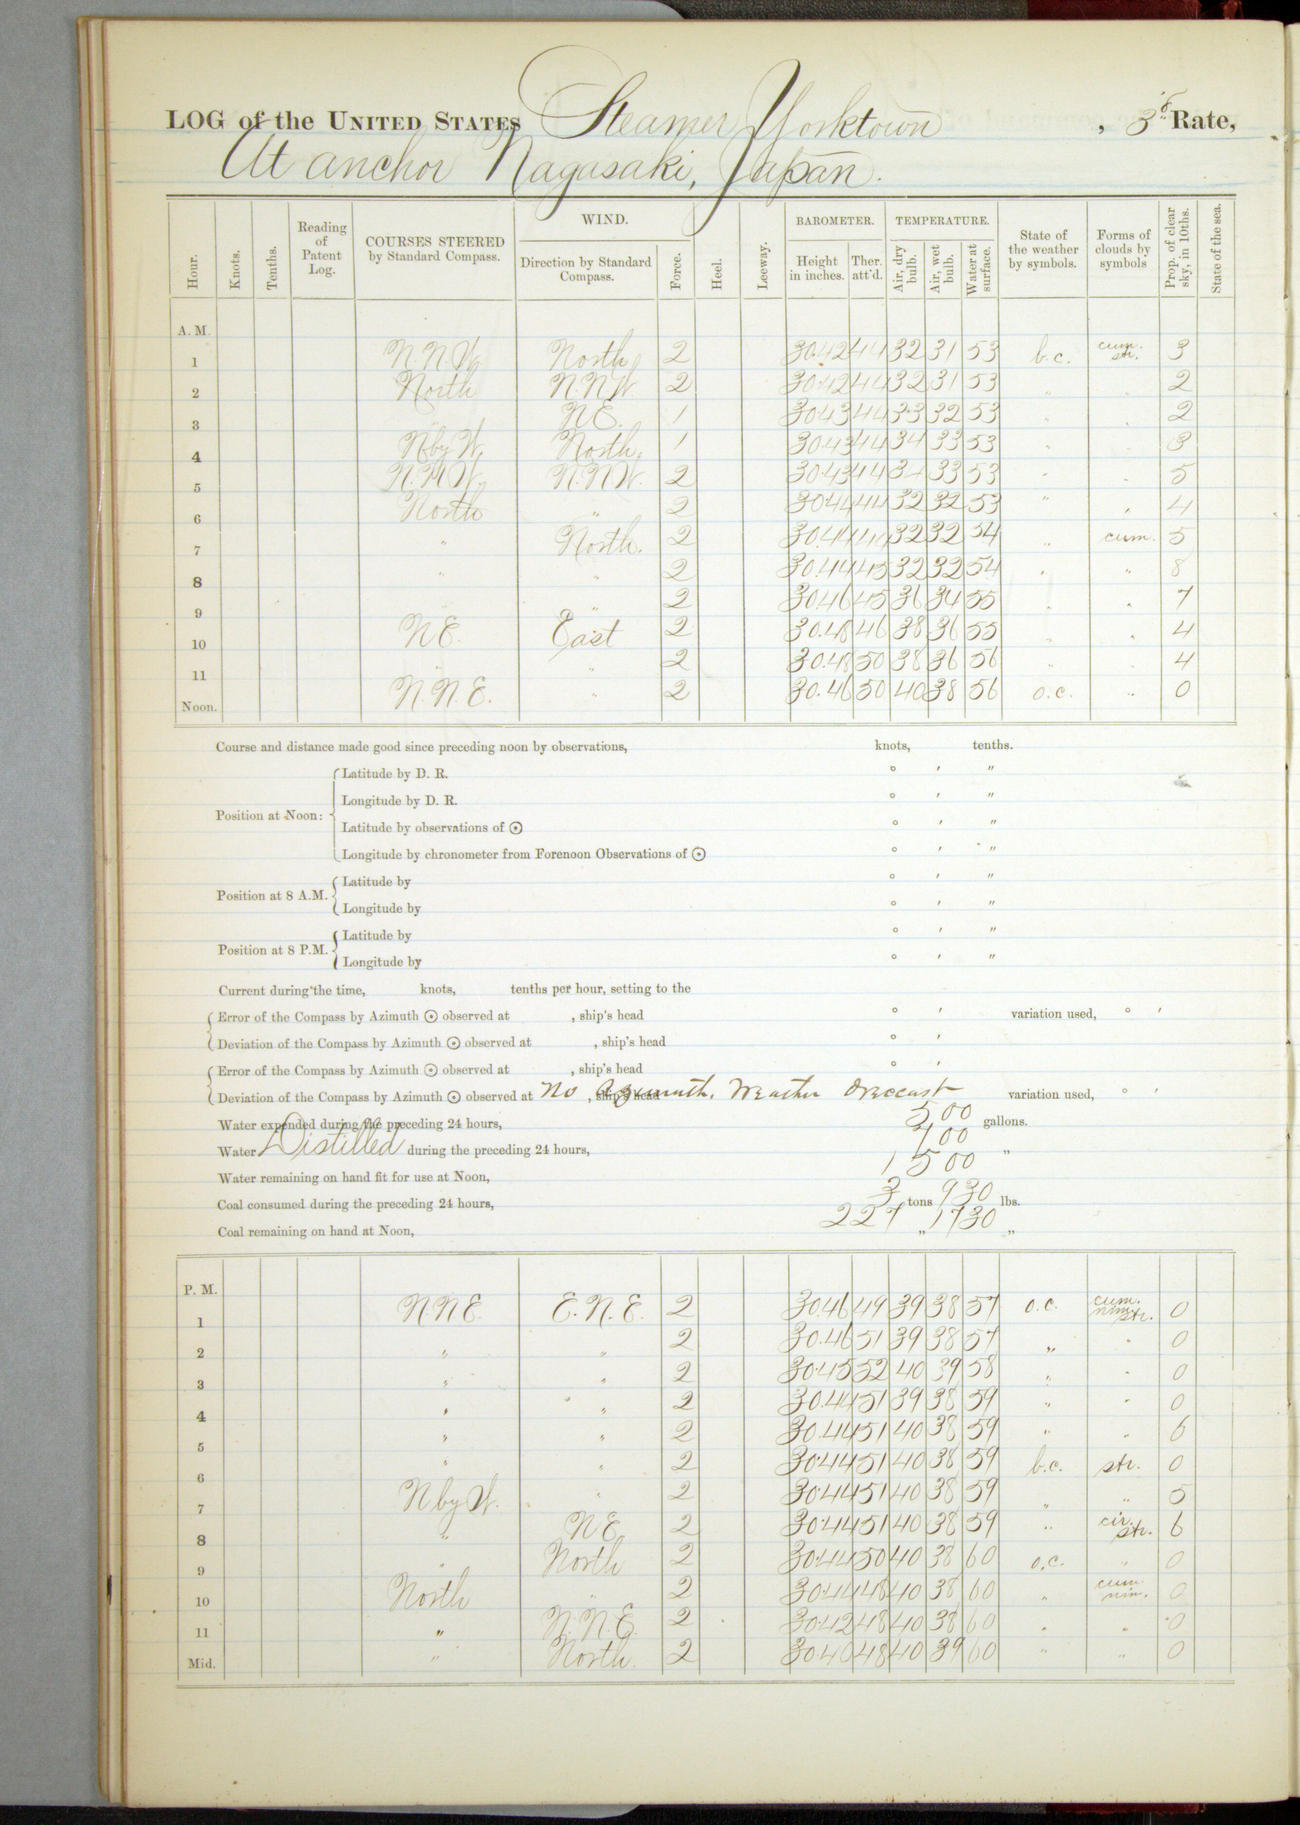 LOG of the UNITED STATES Steamer Yorktown, 3d Rate,
At anchor Nagasaki, Japan.
Hour. Knots. Tenths. Reading of Patent Log. COURSES STEERED by Standard Compass. WIND. Direction by Standard Compass. Force. Heel. Leeway. BAROMETER. Height in inches. Ther. att'd. TEMPERATURE. Air, dry bulb. Air, wet bulb. Water at surface. State of the weather by symbols. Forms of clouds by symbols Prop. of clear sky, in 10ths. State of the sea.
A. M.
1 N.N.W. North 2 30.42 44 32 31 53 b.c. cum. str. 3
2 North N.N.W. 2 30.42 44 32 31 53 " 2
3 N.E. 1 30.43 44 33 32 53 " 2
4 N by W. North. 1 30.43 44 34 33 53 " 3
5 N.N.W. N.N.W. 2 30.43 44 34 33 53 " " 5
6 North " 2 30.44 44 32 32 53 " " 4
7 " North. 2 30.44 44 32 32 54 " cum. 5
8 " " 2 30.44 45 32 32 54 " " 8
9 " 2 30.46 45 36 34 55 " " 7
10 N.E. East 2 30.48 46 38 36 55 " " 4
11 " " 2 30.48 50 38 36 56 " " 4
Noon. N.N.E. " 2 30.46 50 40 38 56 o.c. " 0
Course and distance made good since preceding noon by observations, knots, tenths.
Position at Noon: Latitude by D. R. ° ′ ″
Longitude by D. R. ° ′ ″
Latitude by observations of ☉ ° ′ ″
Longitude by chronometer from Forenoon Observations of ☉ ° ′ ″
Position at 8 A.M. Latitude by ° ′ ″
Longitude by ° ′ ″
Position at 8 P.M. Latitude by ° ′ ″
Longitude by ° ′ ″
Current during the time, knots, tenths per hour, setting to the
Error of the Compass by Azimuth ☉ observed at , ship's head ° ′ variation used, ° ′
Deviation of the Compass by Azimuth ☉ observed at , ship's head ° ′
Error of the Compass by Azimuth ☉ observed at , ship's head ° ′
Deviation of the Compass by Azimuth ☉ observed at No Azimuth. Weather Overcast , ship's head variation used, ° ′
Water expended during the preceding 24 hours, 500 gallons.
Water Distilled during the preceding 24 hours, 400 "
Water remaining on hand fit for use at Noon, 1500
Coal consumed during the preceding 24 hours, 3 tons 930 lbs.
Coal remaining on hand at Noon, 227 " 1730 "
P. M.
1 N.N.E. E.N.E. 2 30.46 49 39 38 57 o.c. cum. nim. str. 0
2 " " 2 30.46 51 39 38 57 " " 0
3 " " 2 30.45 52 40 39 58 " " 0
4 " " 2 30.44 51 39 38 59 " " 0
5 " " 2 30.44 51 40 38 59 " " 6
6 " " 2 30.44 51 40 38 59 b.c. str. 0
7 N by W. " 2 30.44 51 40 38 59 " " 5
8 " N.E. 2 30.44 51 40 38 59 " cir. str. 6
9 " North 2 30.44 50 40 38 60 o.c. " 0
10 North " 2 30.44 48 40 38 60 " cum. nim. 0
11 " N.N.E. 2 30.42 48 40 38 60 " " 0
Mid. " North. 2 30.40 48 40 39 60 " " 0